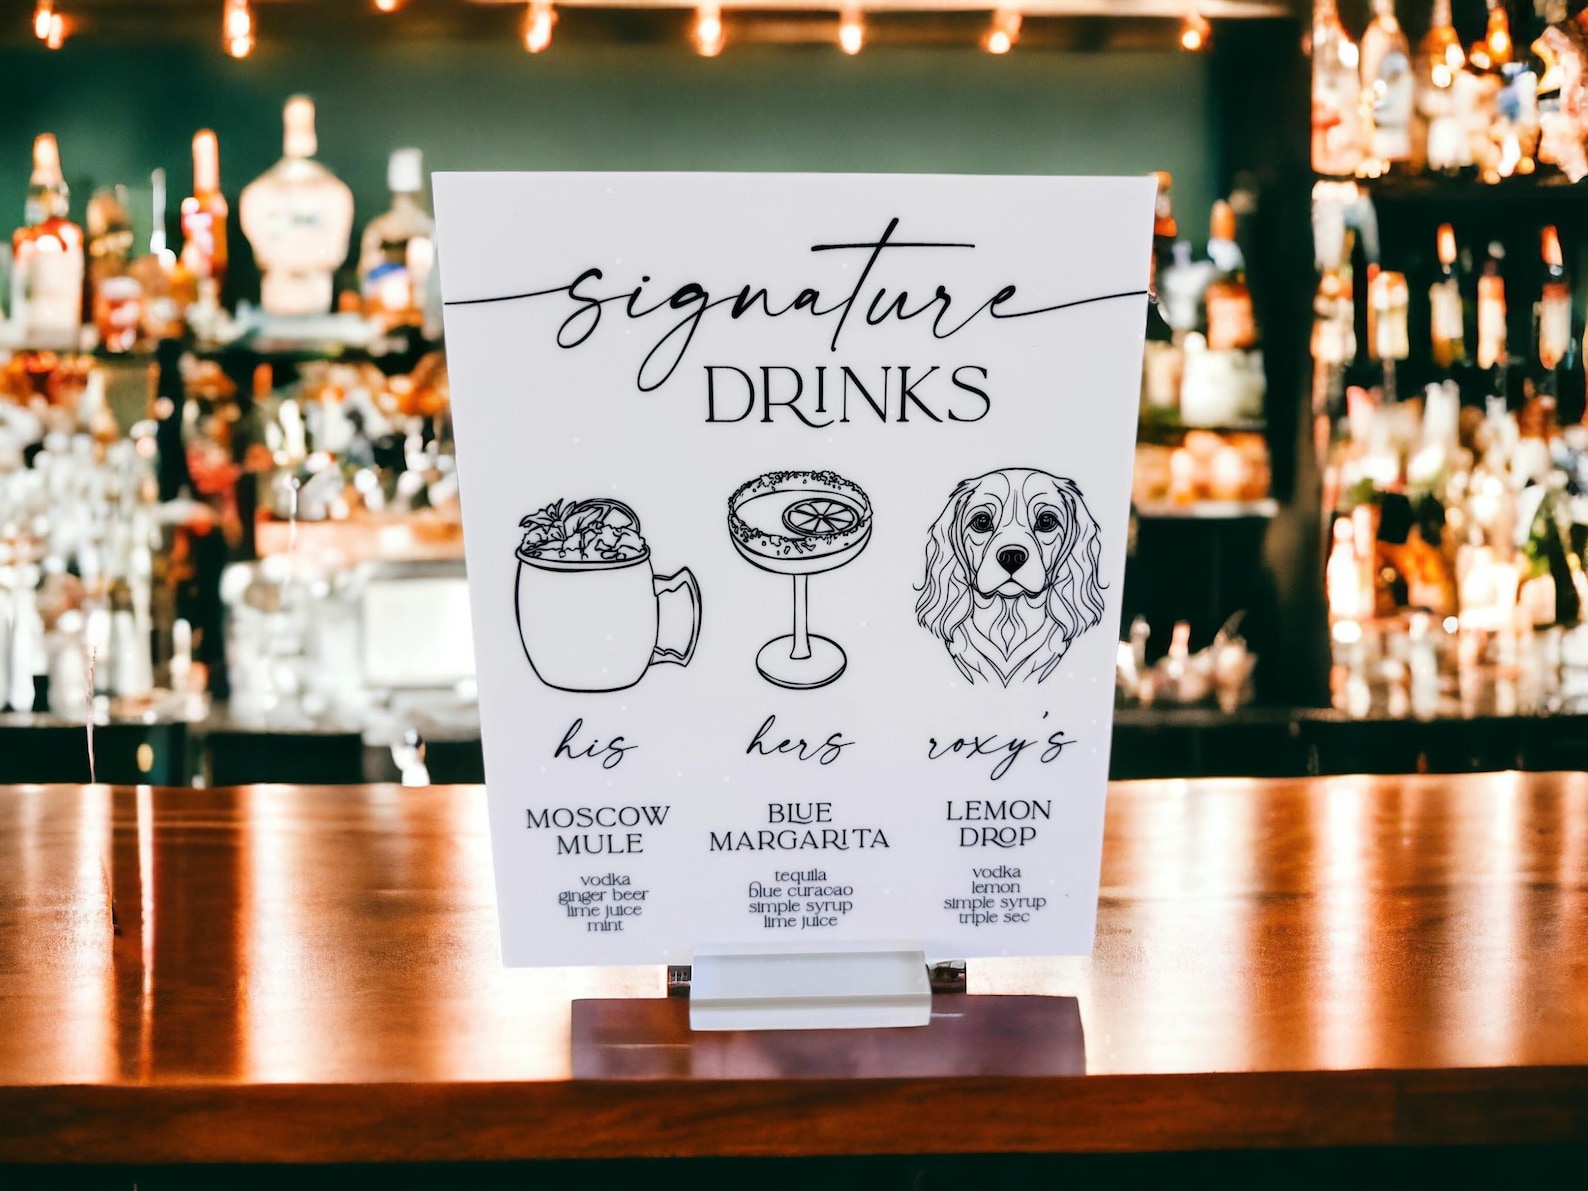 signature
DRINKS
his
MOSCOW
MULE
vodka
ginger beer
lime juice
mint
hers
BLUE
MARGARITA
tequila
blue curacao
simple syrup
lime juice
roxy's
LEMON
DROP
vodka
lemon
simple syrup
triple sec